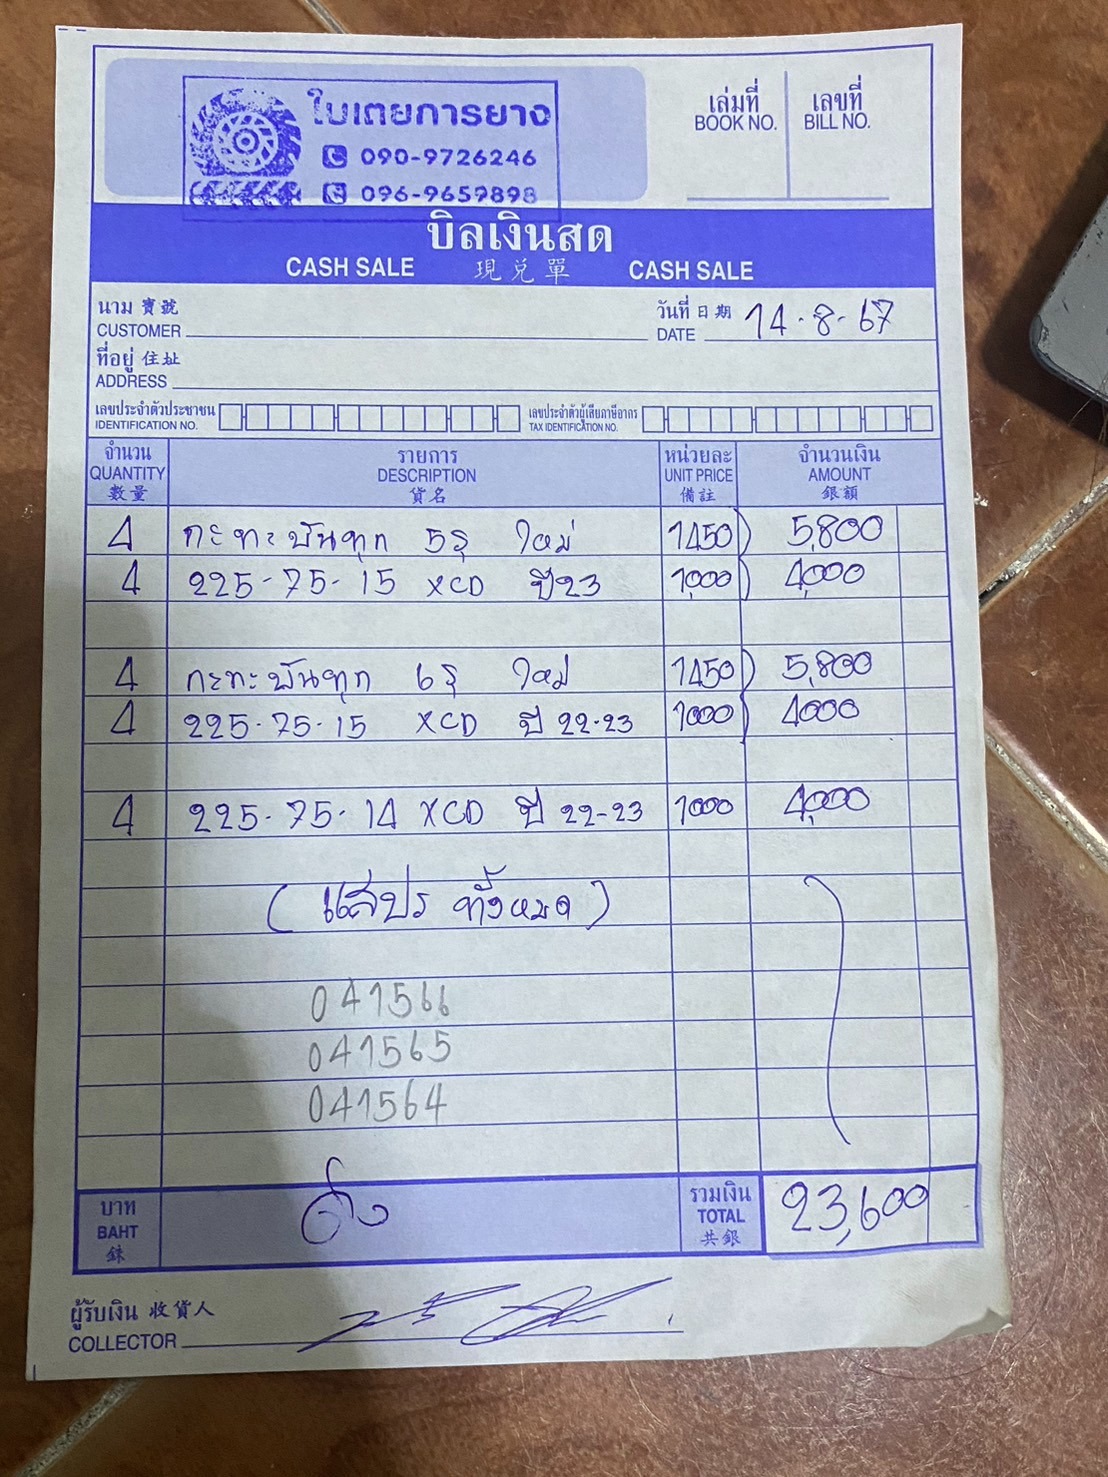 ใบเตยการยาง
090-9726246
096-9659898
เล่มที่
BOOK NO.
เลขที่
BILL NO.
บิลเงินสด
CASH SALE 現兌單 CASH SALE
นาม 寶號
CUSTOMER
วันที่ 日期 14-8-67
DATE
ที่อยู่ 住址
ADDRESS
เลขประจำตัวประชาชน
IDENTIFICATION NO.
เลขประจำตัวผู้เสียภาษีอากร
TAX IDENTIFICATION NO.
จำนวน รายการ หน่วยละ จำนวนเงิน
QUANTITY DESCRIPTION UNIT PRICE AMOUNT
數量 貨名 備註 銀額
4 กะทะบันทุก 5รู ใหม่ 1450 5,800
4 225-75-15 XCD ปี23 1,000 4,000
4 กะทะบันทุก 6รู ใหม่ 1450 5,800
4 225-75-15 XCD ปี 22-23 1000 4000
4 225-75-14 XCD ปี 22-23 1000 4,000
(แสปร ทั้งหมด)
041566
041565
041564
บาท
BAHT
銖
รวมเงิน
TOTAL
共銀
23,600
ผู้รับเงิน 收貨人
COLLECTOR